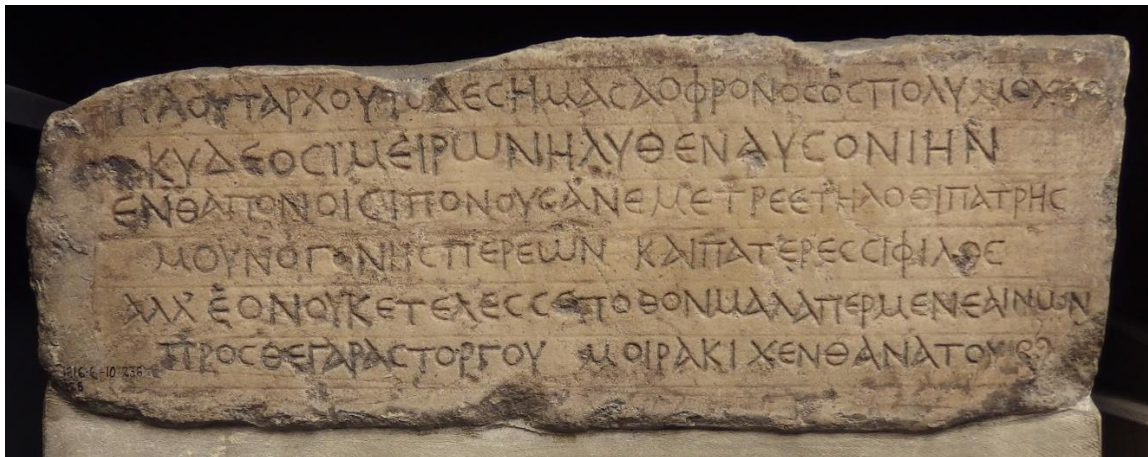 ΠΛΟΥΤΑΡΧΟΥΤΟΔΕСΗΜΑСΑΟΦΡΟΝΟСΟСΠΟΛΥΜΟΧΘΟΥ
ΚΥΔΕΟСΙΜΕΙΡΩΝΗΛΥΘΕΝΑΥСΟΝΙΗΝ
ΕΝΘΑΠΟΝΟΙСΙΠΟΝΟΥСΑΝΕΜΕΤΡΕΕΤΗΛΟΘΙΠΑΤΡΗС
ΜΟΥΝΟΓΟΝΗСΠΕΡΕΩΝ ΚΑΙΠΑΤΕΡΕССΙΦΙΛΟС
ΑΛΛΕΟΝΟΥΚΕΤΕΛΕССΕΠΟΘΟΝΜΑΛΑΠΕΡΜΕΝΕΑΙΝΩΝ
ΠΡΟСΘΕΓΑΡΑСΤΟΡΓΟΥ ΜΟΙΡΑΚΙΧΕΝΘΑΝΑΤΟΥ
1816-6-10 236